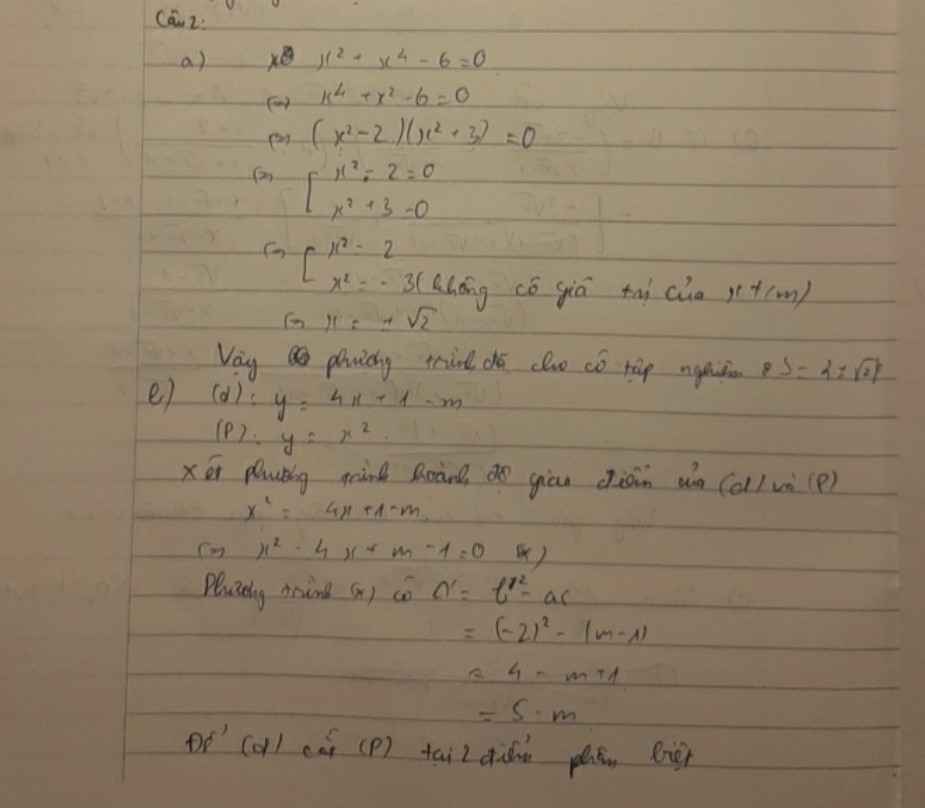 Câu 2:
a) x² + x⁴ - 6 = 0
(=) x⁴ + x² - 6 = 0
(=) (x² - 2)(x² + 3) = 0
(=) [ x² - 2 = 0
x² + 3 = 0
(=) [ x² = 2
x² = - 3 (không có giá trị của x t/m)
(=) x = ± √2
Vậy phương trình đã cho có tập nghiệm S = {± √2}
b) (d): y = 4x + 1 - m
(P): y = x².
Xét phương trình hoành độ giao điểm của (d) và (P)
x² = 4x + 1 - m
(=) x² - 4x + m - 1 = 0 (*)
Phương trình (*) có Δ' = b'² - ac
= (-2)² - (m - 1)
= 4 - m + 1
= 5 - m
Để (d) cắt (P) tại 2 điểm phân biệt